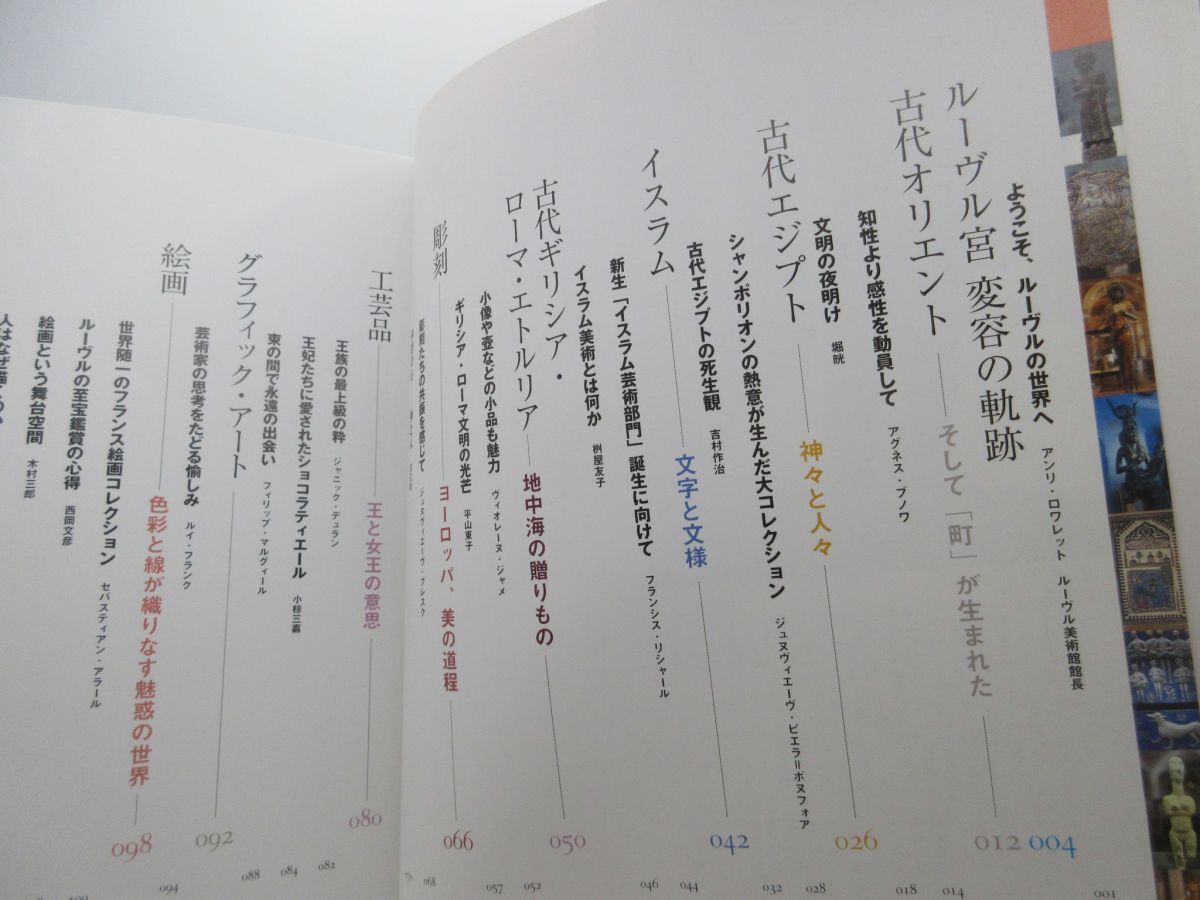 ようこそ、ルーヴルの世界へ アンリ・ロワレット ルーヴル美術館館長 001
ルーヴル宮 変容の軌跡 004
古代オリエント そして「町」が生まれた 012
知性より感性を動員して アグネス・ブノワ 014
文明の夜明け 堀晄 018
古代エジプト 神々と人々 026
シャンポリオンの熱意が生んだ大コレクション ジュヌヴィエーヴ・ピエラ＝ボヌフォア 028
古代エジプトの死生観 吉村作治 032
イスラム 文字と文様 042
新生「イスラム芸術部門」誕生に向けて フランシス・リシャール 044
イスラム美術とは何か 桝屋友子 046
古代ギリシア・
ローマ・エトルリア 地中海の贈りもの 050
小像や壺などの小品も魅力 ヴィオレーヌ・ジャメ 052
ギリシア・ローマ文明の光芒 平山東子 057
彫刻 ヨーロッパ、美の道程 066
彫刻たちの共振を感じて ジュヌヴィエーヴ・ブレスク 068
工芸品 王と女王の意思 080
王族の最上級の粋 ジャニック・デュラン 082
王妃たちに愛されたショコラティエール 小椋三嘉 084
束の間で永遠の出会い フィリップ・マルグィール 088
グラフィック・アート 092
芸術家の思考をたどる愉しみ ルイ・フランク 094
絵画 色彩と線が織りなす魅惑の世界 098
世界随一のフランス絵画コレクション セバスティアン・アラール 100
ルーヴルの至宝鑑賞の心得 西岡文彦
絵画という舞台空間 木村三郎
人はなぜ描くのか